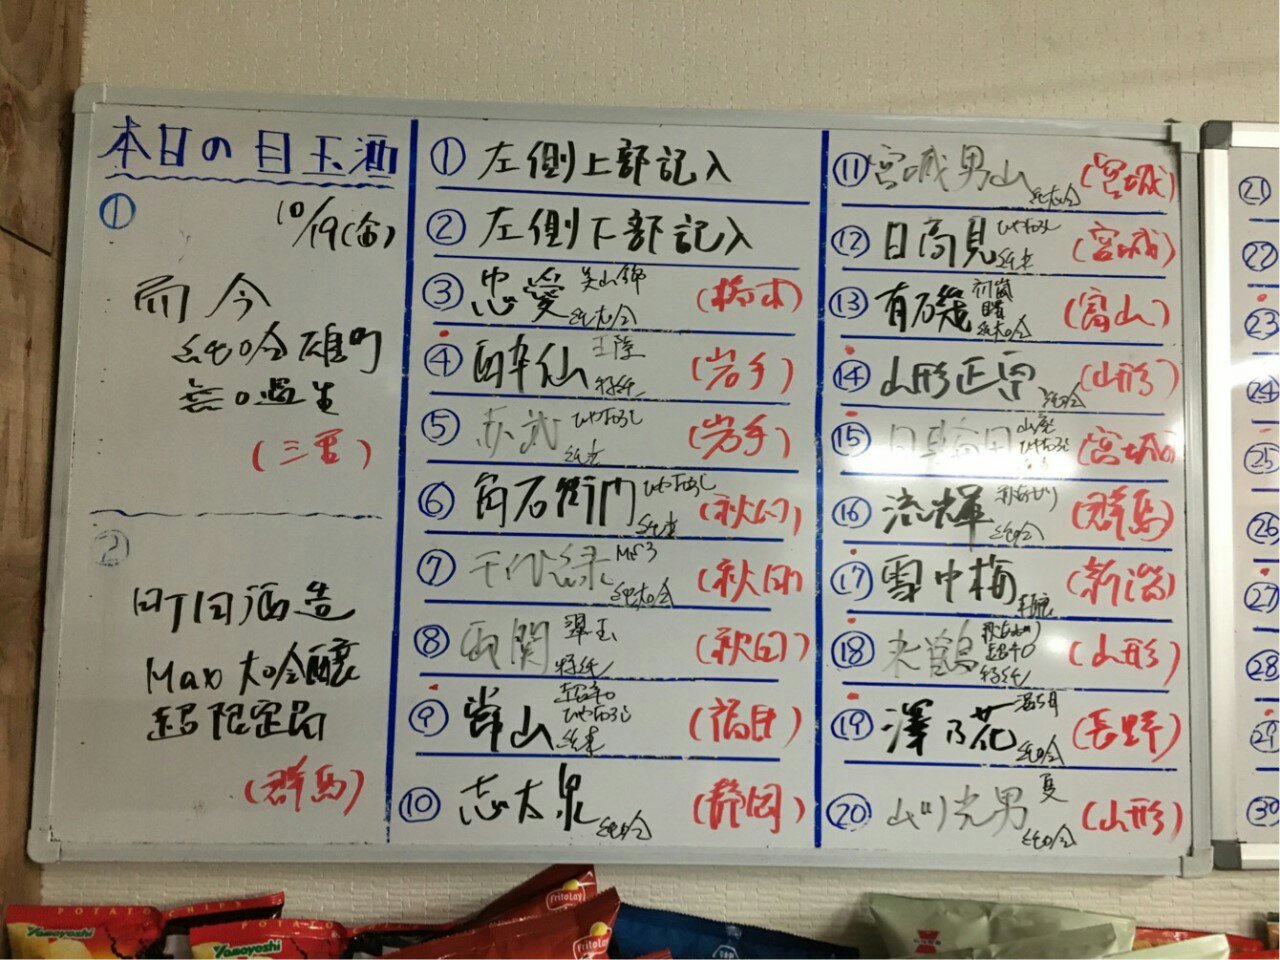 本日の目玉酒
①
10/19(金)
而今
純吟 雄町
無ロ過生
(三重)
②
町田酒造
Max 大吟醸
超限定品
(群馬)
① 左側上部記入
② 左側下部記入
③ 忠愛 美山錦 純大吟 (栃木)
④ 酔仙 特純 (岩手)
⑤ 赤武 ひやおろし 純米 (岩手)
⑥ 角右衛門 ひやおろし 純米 (秋田)
⑦ 千代緑 純大吟 (秋田)
⑧ 両関 翠玉 特純 (秋田)
⑨ 常山 超辛 ひやおろし 純米 (福井)
⑩ 志太泉 純吟 (静岡)
⑪ 宮城男山 純大吟 (宮城)
⑫ 日高見 ひやおろし 純米 (宮城)
⑬ 有磯 純大吟 (富山)
⑭ 山形正宗 純吟 (山形)
⑮ 山廃 ひやおろし (宮城)
⑯ 流輝 秋あがり 純吟 (群馬)
⑰ 雪中梅 本醸 (新潟)
⑱ 米鶴 秋あがり 超辛 特純 (山形)
⑲ 澤乃花 純吟 (長野)
⑳ 山川光男 夏 純吟 (山形)
21
22
23
24
25
26
27
28
29
30
POTATO CHIPS
Yamayoshi
Yamayoshi
FritoLay
FritoLay